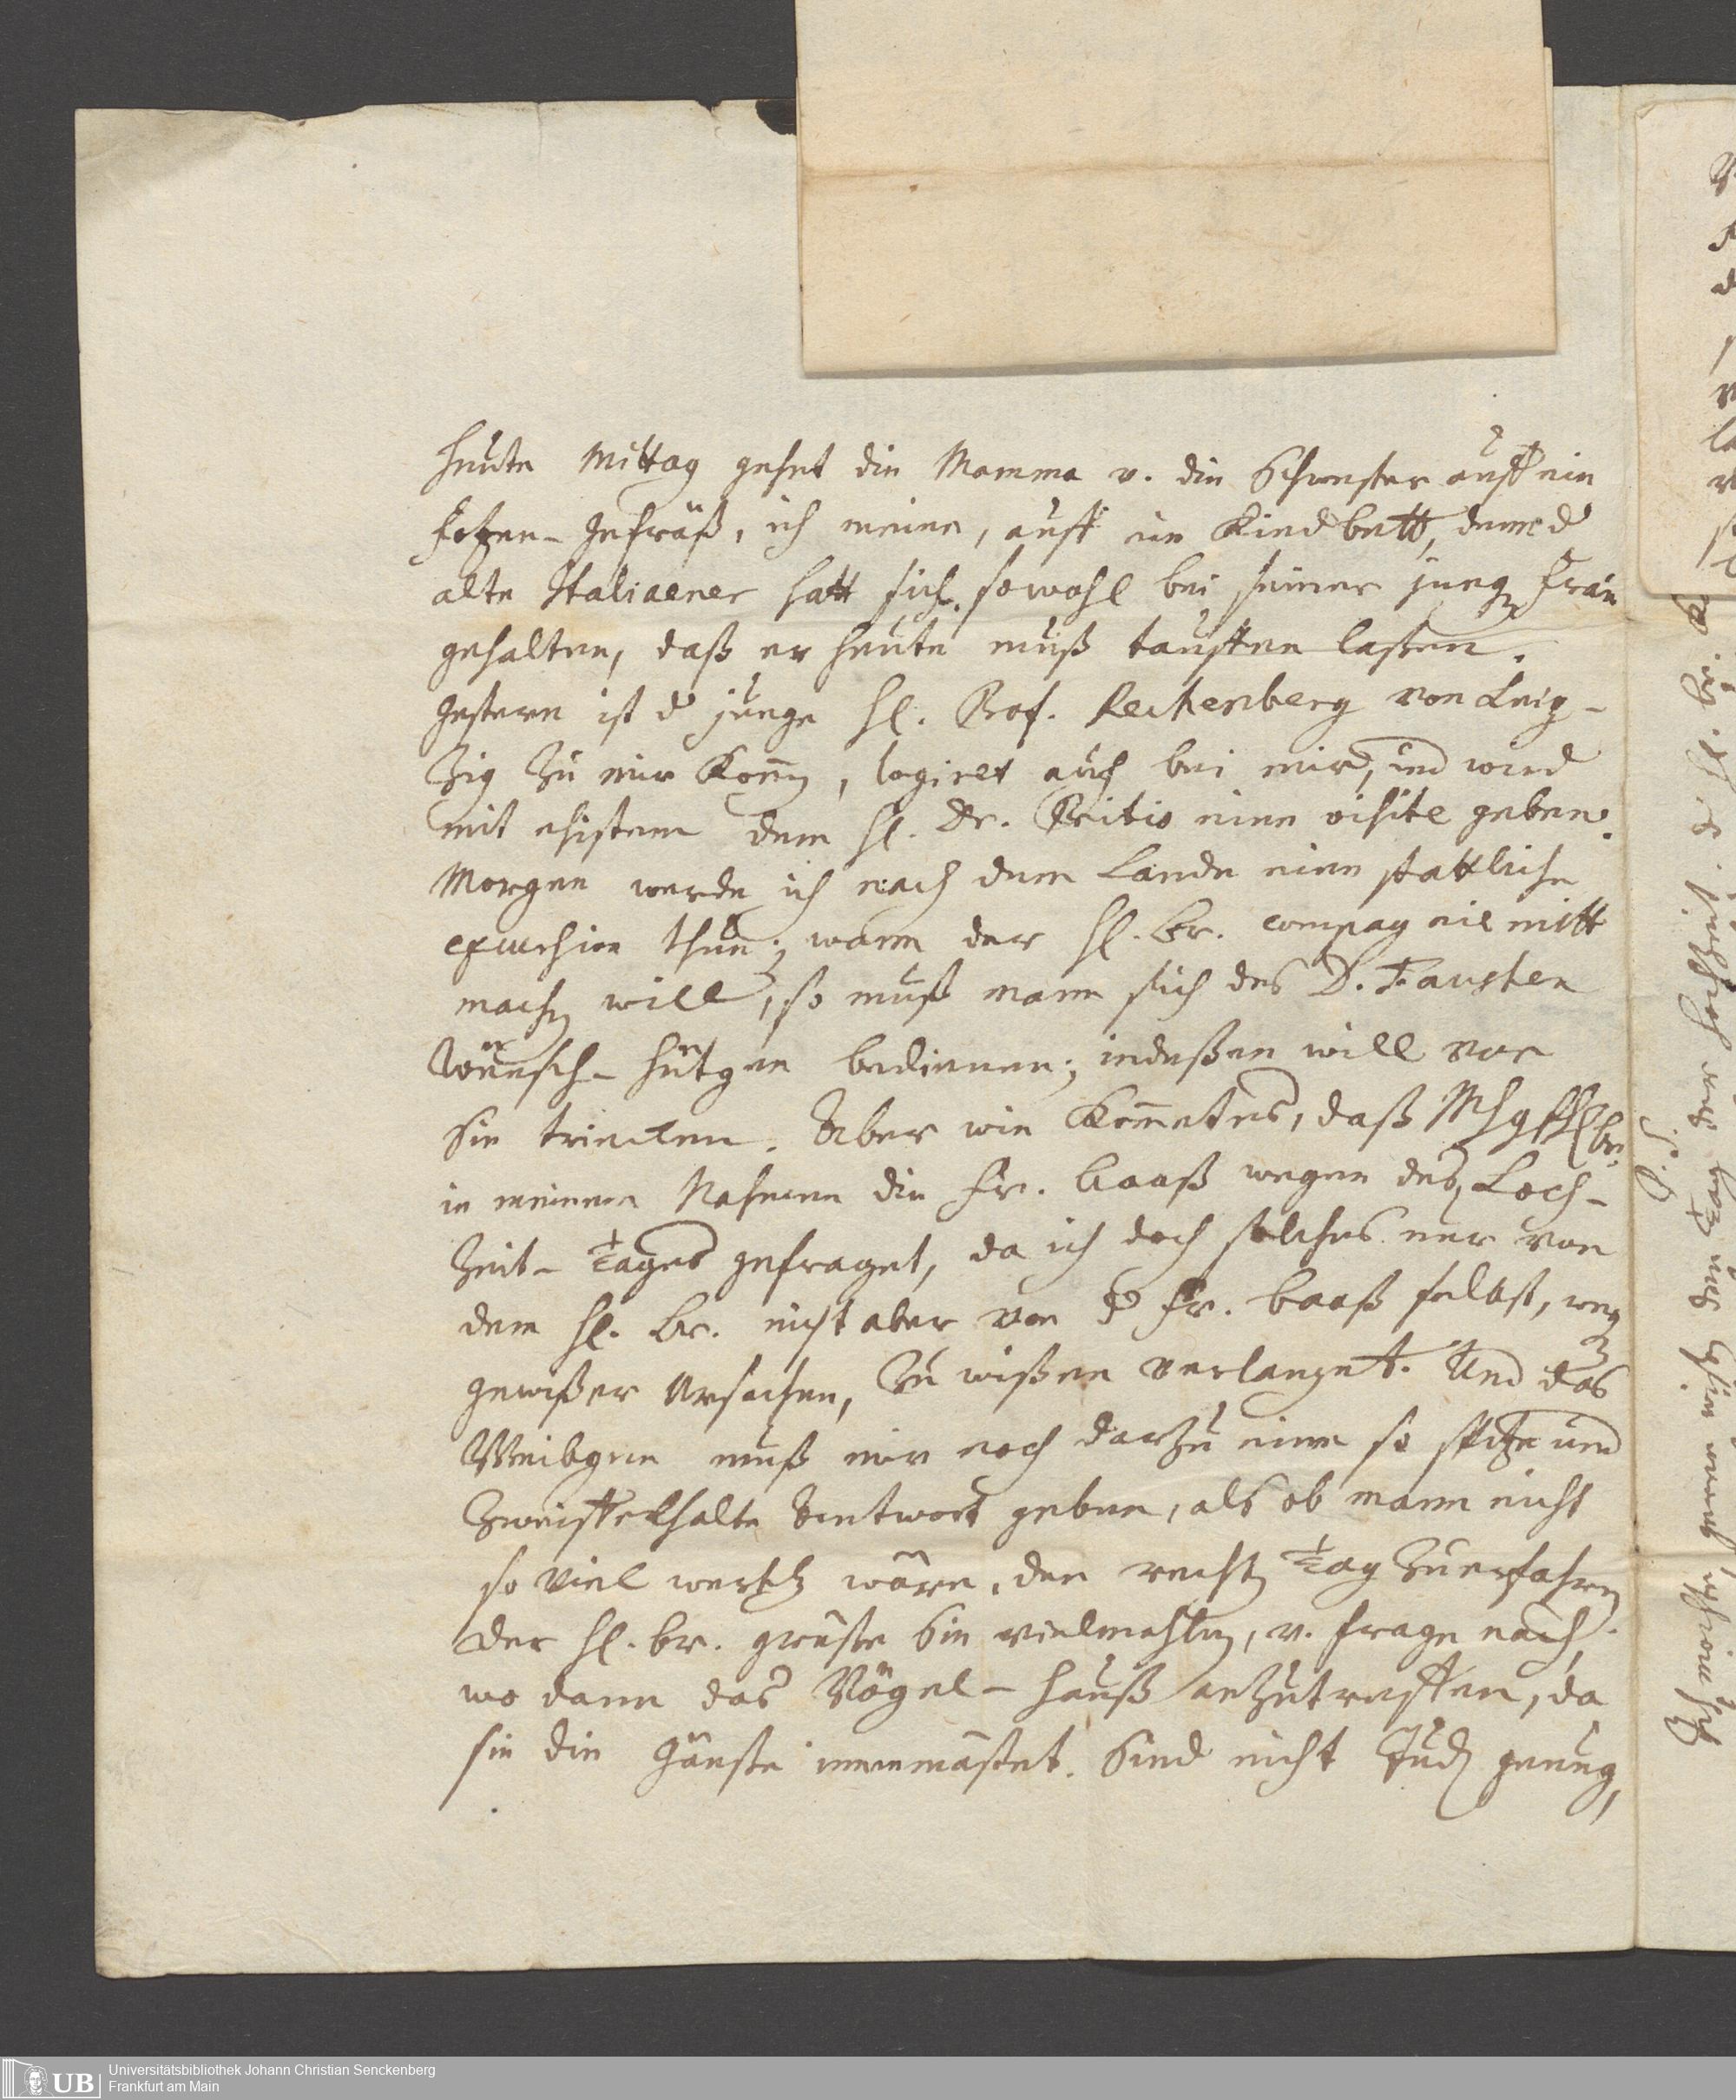 Heute Mittag gehet die Mamma v. die Schwester auff ein
Fotzen-Gefräß, ich meine, auff ein Kindbett, denn d
alte Italiaener hatt sich sowohl bei seiner jungen Frau
gehalten, daß er heute muß tauffen laßen.
Gestern ist d junge Hl. Prof. Rechenberg von Leip-
zig zu mir kommen, logiret auch bei mir, und wird
mit ehistem dem Hl. Dr. Pritio eine visite geben.
Morgen werde ich nach dem Lande eine stattliche
excursion thun; wann der Hl. Br. compagnie mitt
machen will, so muß mann sich des D. Fausten
Wünsch-Hütgen bedienen; indeßen will vor
Sie trincken. Aber wie kommet es, daß MhgHl Br.
in meinem Nahmen die Fr. Baaß wegen des Loch-
zeit-Tages gefraget, da ich doch solches nur von
dem Hl. Br. nicht aber von d Fr. Baaß selbst, wegen
gewißer Ursachen, zu wißen verlanget. Und das
Weibgen muß mir noch darzu eine so spitze und
zweiffelhaffte Antwort geben, als ob mann nicht
so viel werth wäre, den rechten Tag zu erfahren
Der Hl. Br. grüße Sie vielmahlen, v. frage nach,
wo dann das Vögel-Hauß anzutreffen, da
sie die Gänße innemästet. Sind nicht Juden genug,
Universitätsbibliothek Johann Christian Senckenberg
Frankfurt am Main
UB